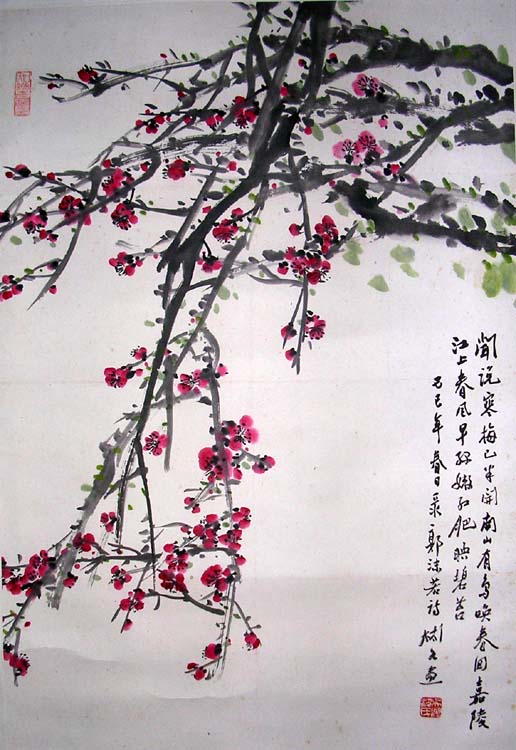 闻说寒梅已半开南山有鸟唤春回嘉陵
江上春风早好嫩红肥映碧苔
己巳年春日录郭沫若诗 画